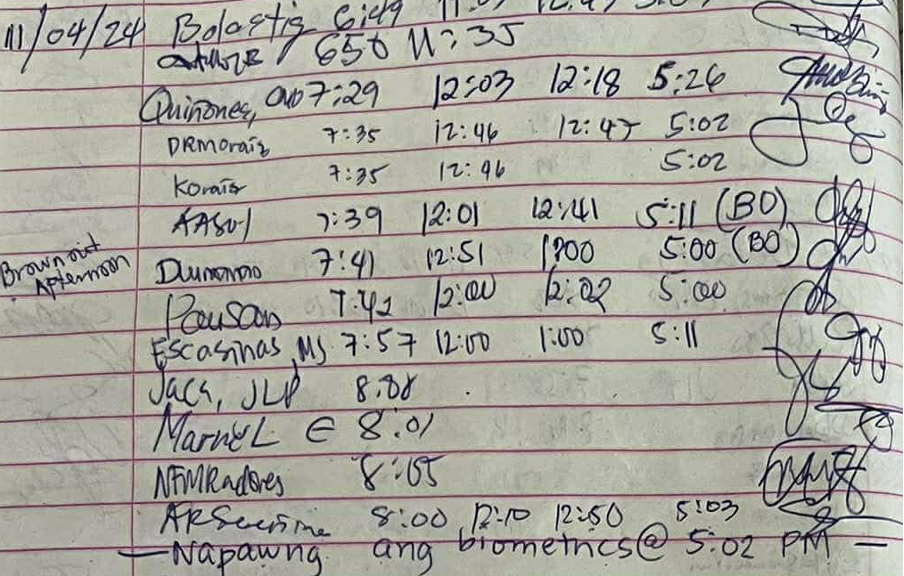 11/04/24 Bolastig 6:49
650 11:35
Quiñones, 7:29 12:03 12:18 5:26
DRMorais 7:35 12:46 12:47 5:02
Korais 7:35 12:46 5:02
7:39 12:01 12:41 5:11 (BO)
Brown out Afternoon
7:41 12:51 1:00 5:00 (BO)
Pausan 7:42 12:00 12:02 5:00
Escasinas, MJ 7:57 12:00 1:00 5:11
JLP
Marvel E 8:01
NFMRadores 8:05
8:00 12:10 12:50 5:03
— Napawng ang biometrics @ 5:02 PM —